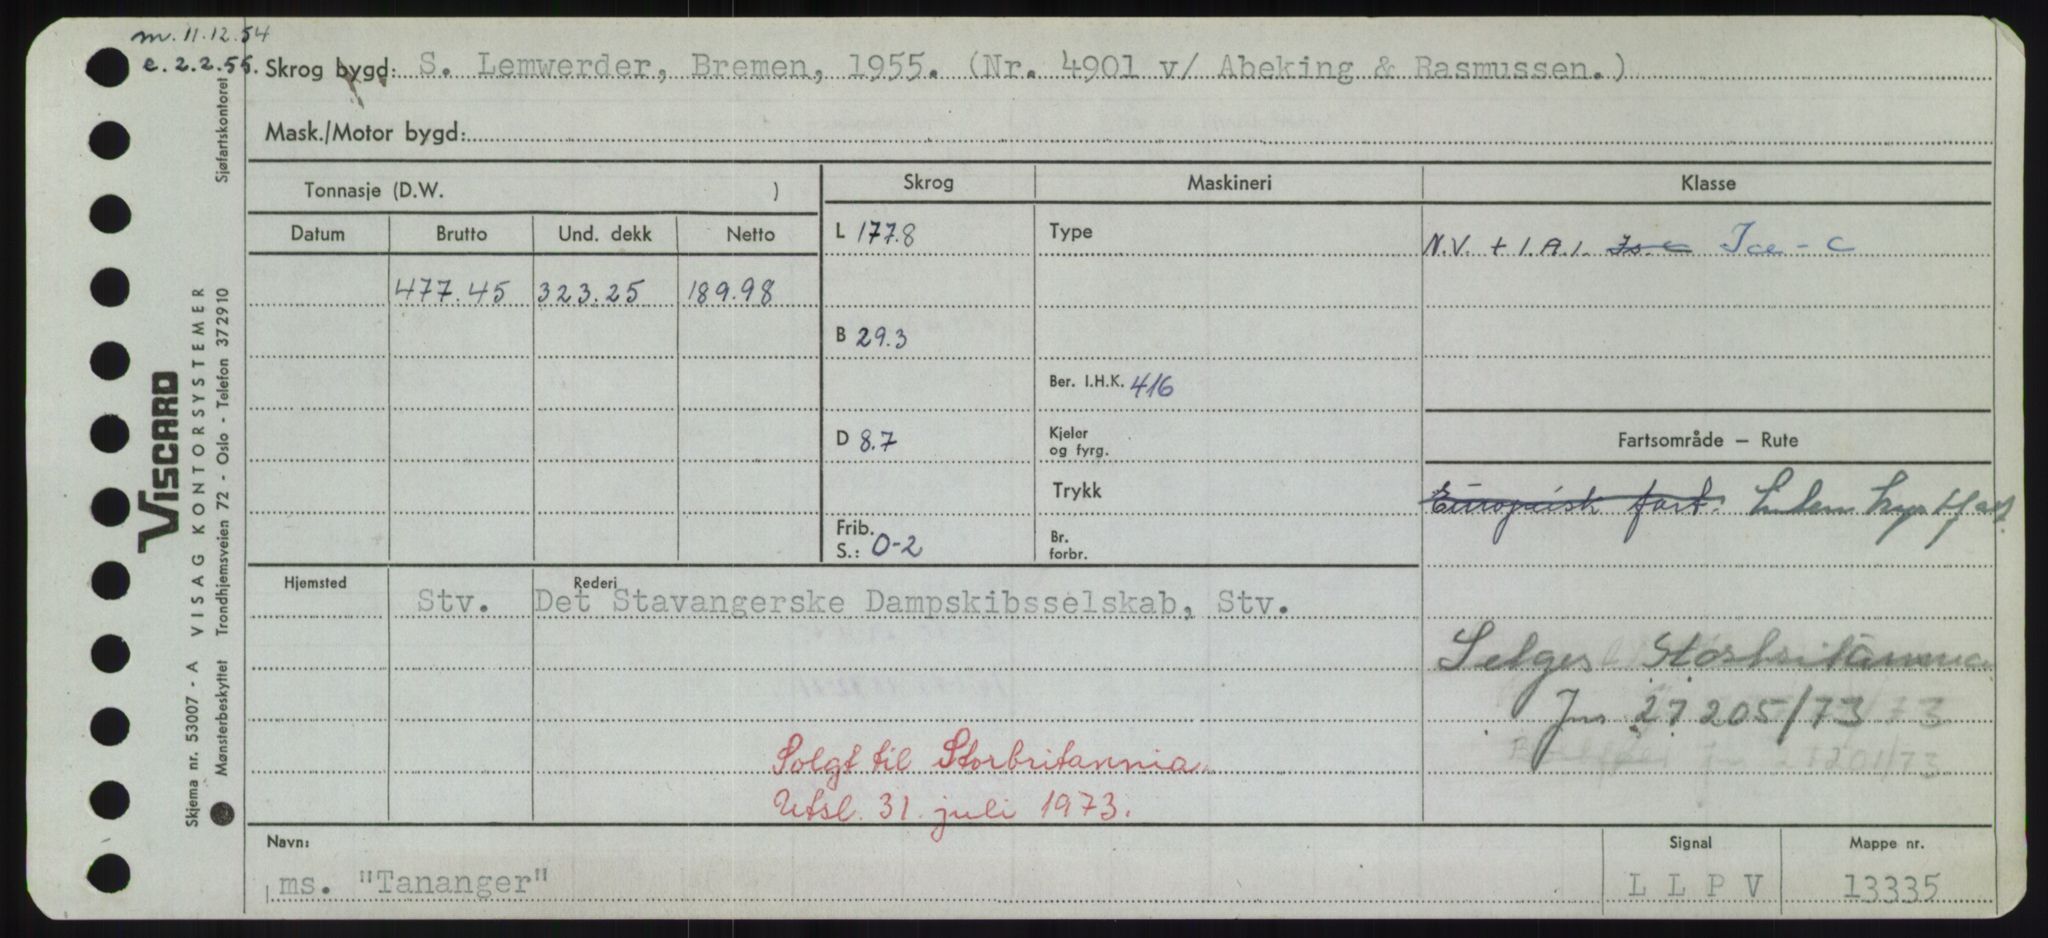 m. 11.12.54
e. 2.2.55.
Skrog bygd: S. Lemwerder, Bremen, 1955. (Nr. 4901 v/ Abeking & Rasmussen.)
Mask./Motor bygd:
Tonnasje (D.W. )
Skrog Maskineri Klasse
Datum Brutto Und. dekk Netto
L 177.8 Type N.V. + 1.A.1. Is-C Ice-C
477.45 323.25 189.98
B 29.3
Ber. I.H.K. 416
D 8.7 Kjeler og fyrg.
Fartsområde – Rute
Trykk
Europeisk fart.
Frib. S.: 0-2 Br. forbr.
Hjemsted Rederi
Stv. Det Stavangerske Dampskibsselskab, Stv.
Selges Storbritannia
Jnr 27205/73
Solgt til Storbritannia.
Utsl. 31. juli 1973.
Navn: Signal Mappe nr.
ms. "Tananger" L L P V 13335
Skjema nr. 53007 - A VISAG KONTORSYSTEMER
Mønsterbeskyttet Trondhjemsveien 72 - Oslo - Telefon 37 29 10 Sjøfartskontoret
VISCARD